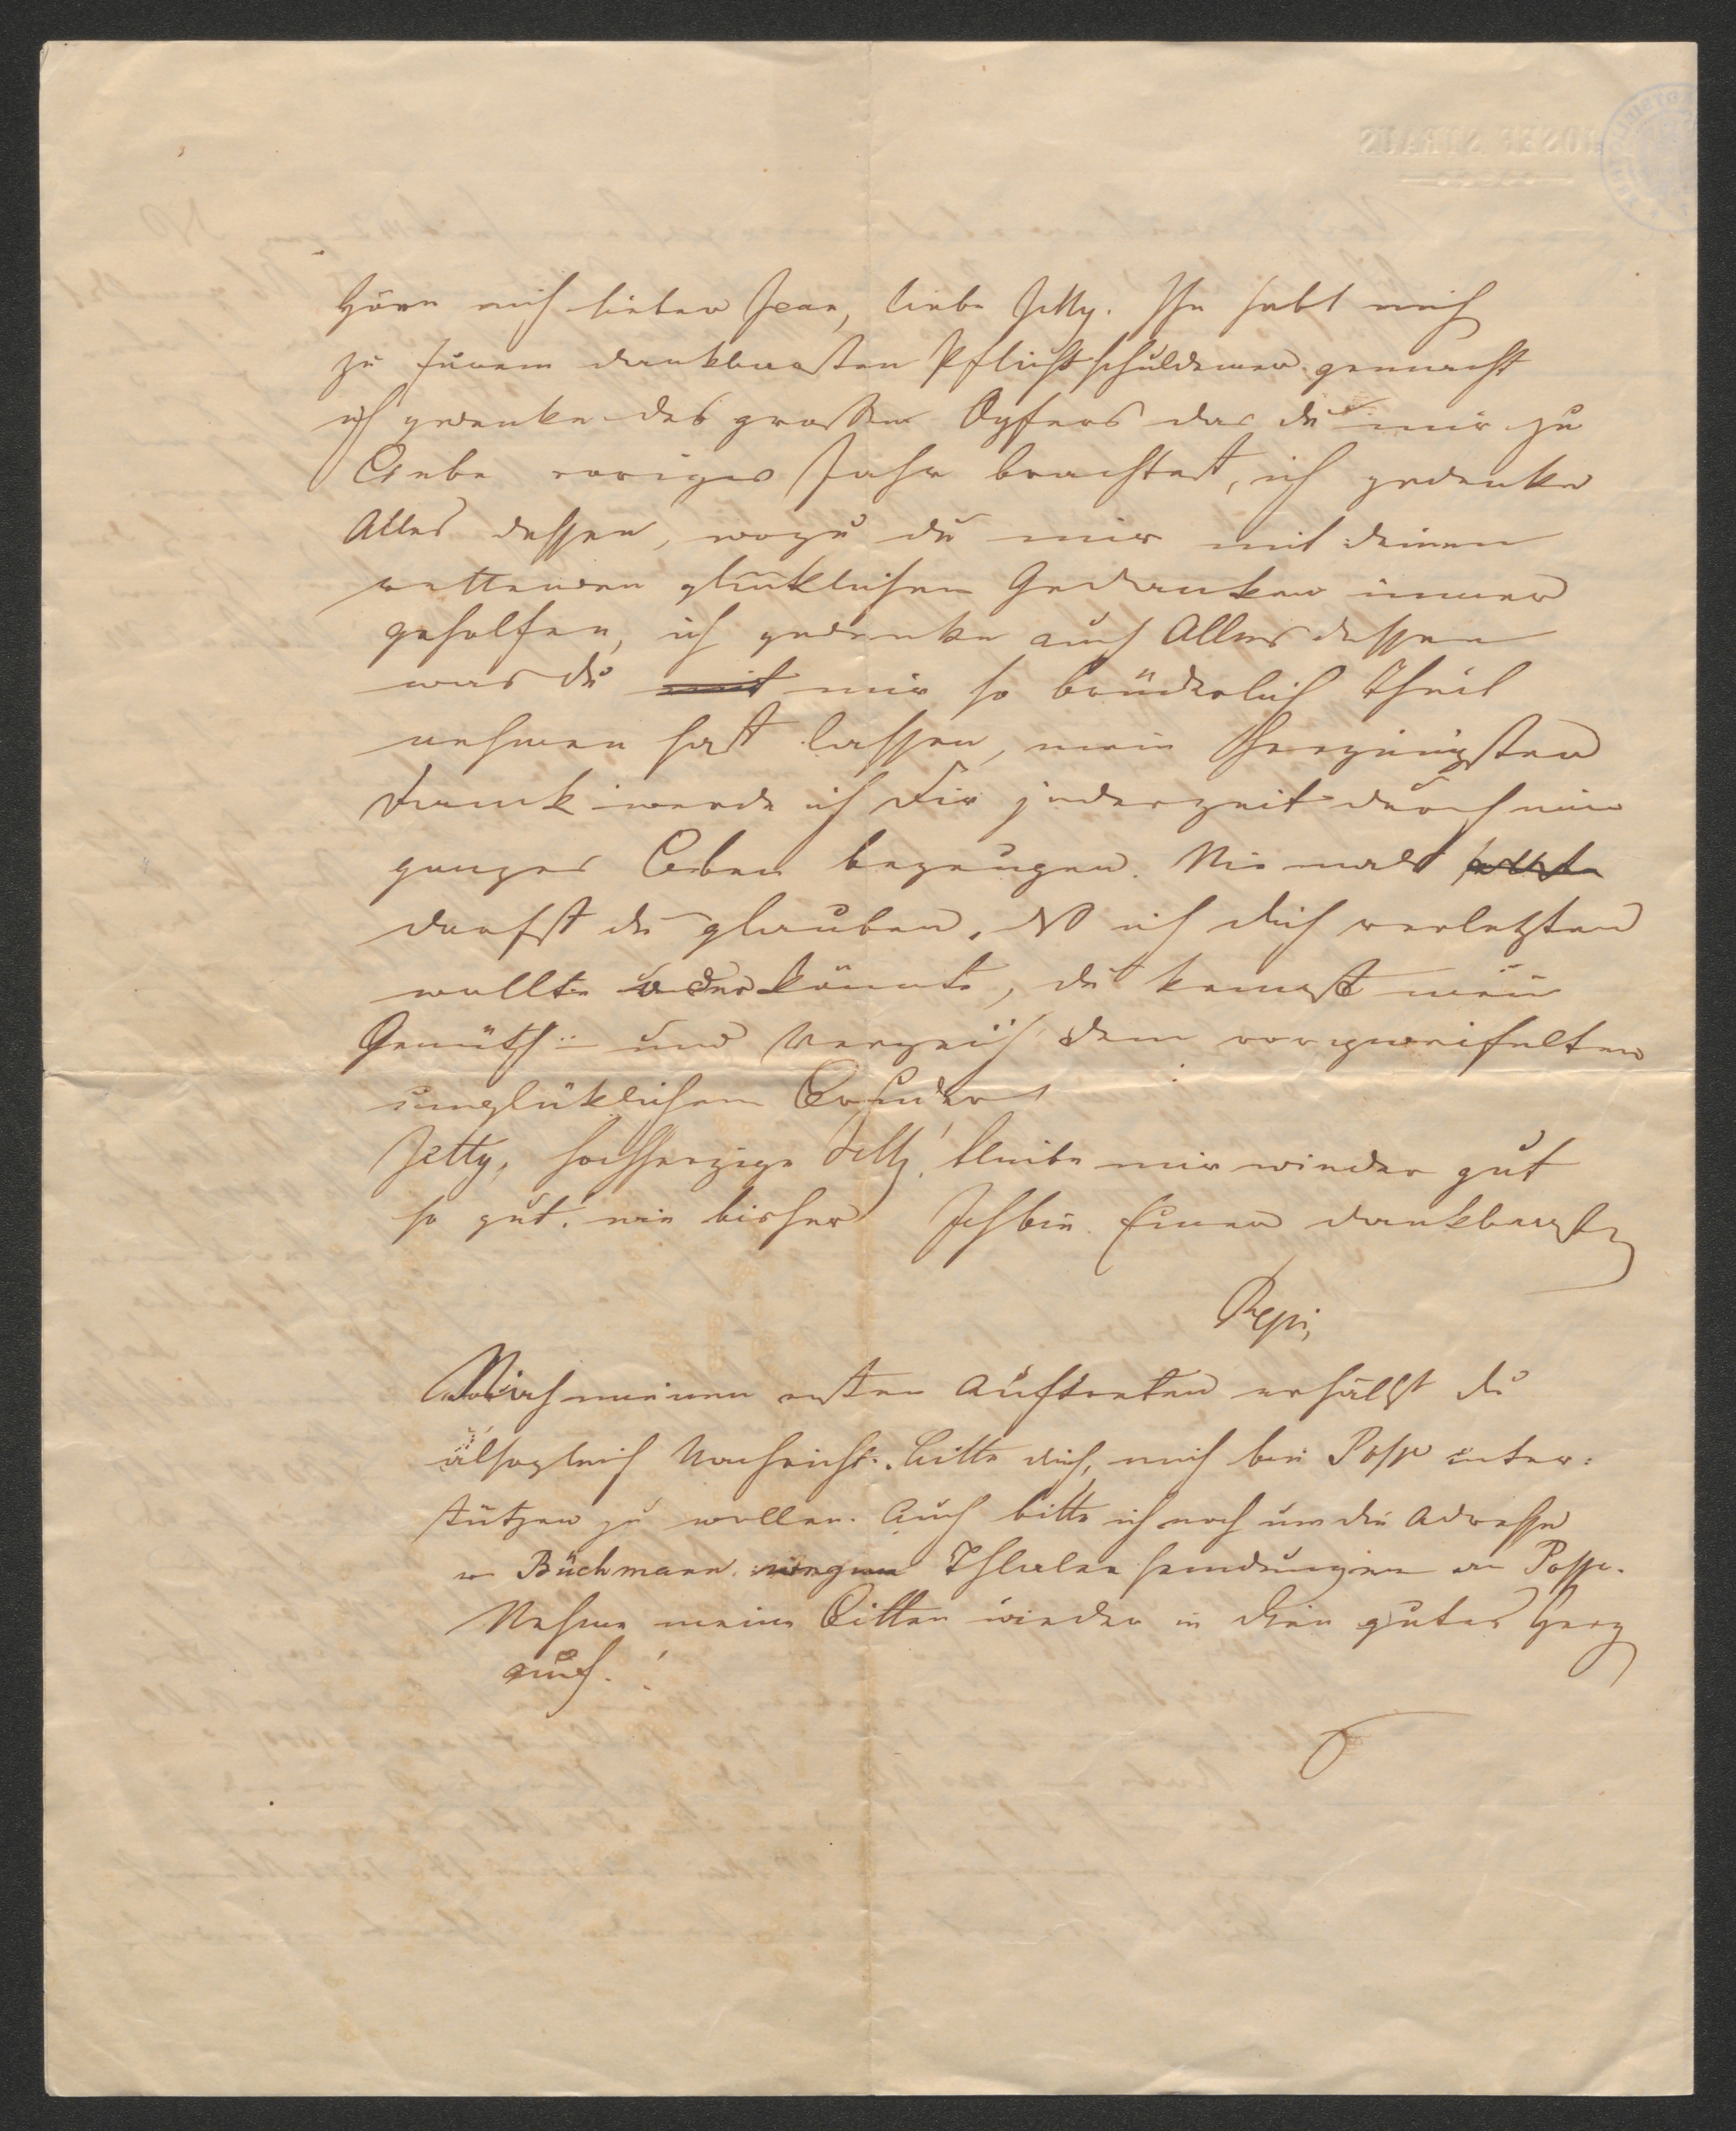 Höre mich lieber Jean, liebe Jetty. Ihr habt mich
zu Eurem dankbarsten Pflichtschuldener gemacht
ich gedenke des großen Opfers das du mir zu
Liebe voriges Jahr brachtest, ich gedenke
Alles dessen, wozu du mir mit deinen
rettenden glücklichen Gedanken immer
geholfen, ich gedenke auch Alles dessen
was du mit mir so brüderlich Theil
nehmen hast lassen, mein Herzinigsten
Dank werde ich Dir jederzeit durch mein
ganzes Leben bezeugen. Niemals
darfst du glauben, daß ich dich verletzten
wollte oder könnte, du kennst mein
Gemüth und Verzeih dem verzweifelten
unglüklichen Bruder
Jetty, hochherzige Jetty! bleibe mir wieder gut
so gut, wie bisher Ich bin Euer dankbarster
Pepi,
Nach meinem ersten Auftreten erhälst du
alsogleich Nachricht. bitte dich, mich bei Posse unter:
stützen zu wollen. Auch bitte ich noch um die Adresse
v Büchmann. wegen Thaler sendungen an Posse.
Nehme meine Bitten wieder in dein gutes Herz
auf.!
JOSEF STRAUS